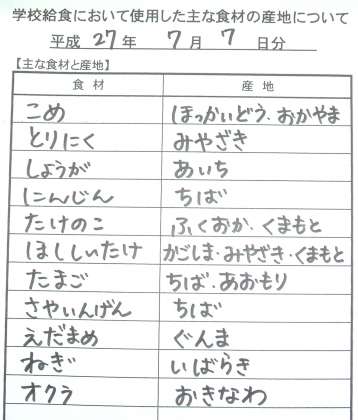 学校給食において使用した主な食材の産地について
平成 27 年 7 月 7 日分
【主な食材と産地】
食材 産地
こめ ほっかいどう、おかやま
とりにく みやざき
しょうが あいち
にんじん ちば
たけのこ ふくおか・くまもと
ほししいたけ かごしま・みやざき・くまもと
たまご ちば、あおもり
さやいんげん ちば
えだまめ ぐんま
ねぎ いばらき
オクラ おきなわ